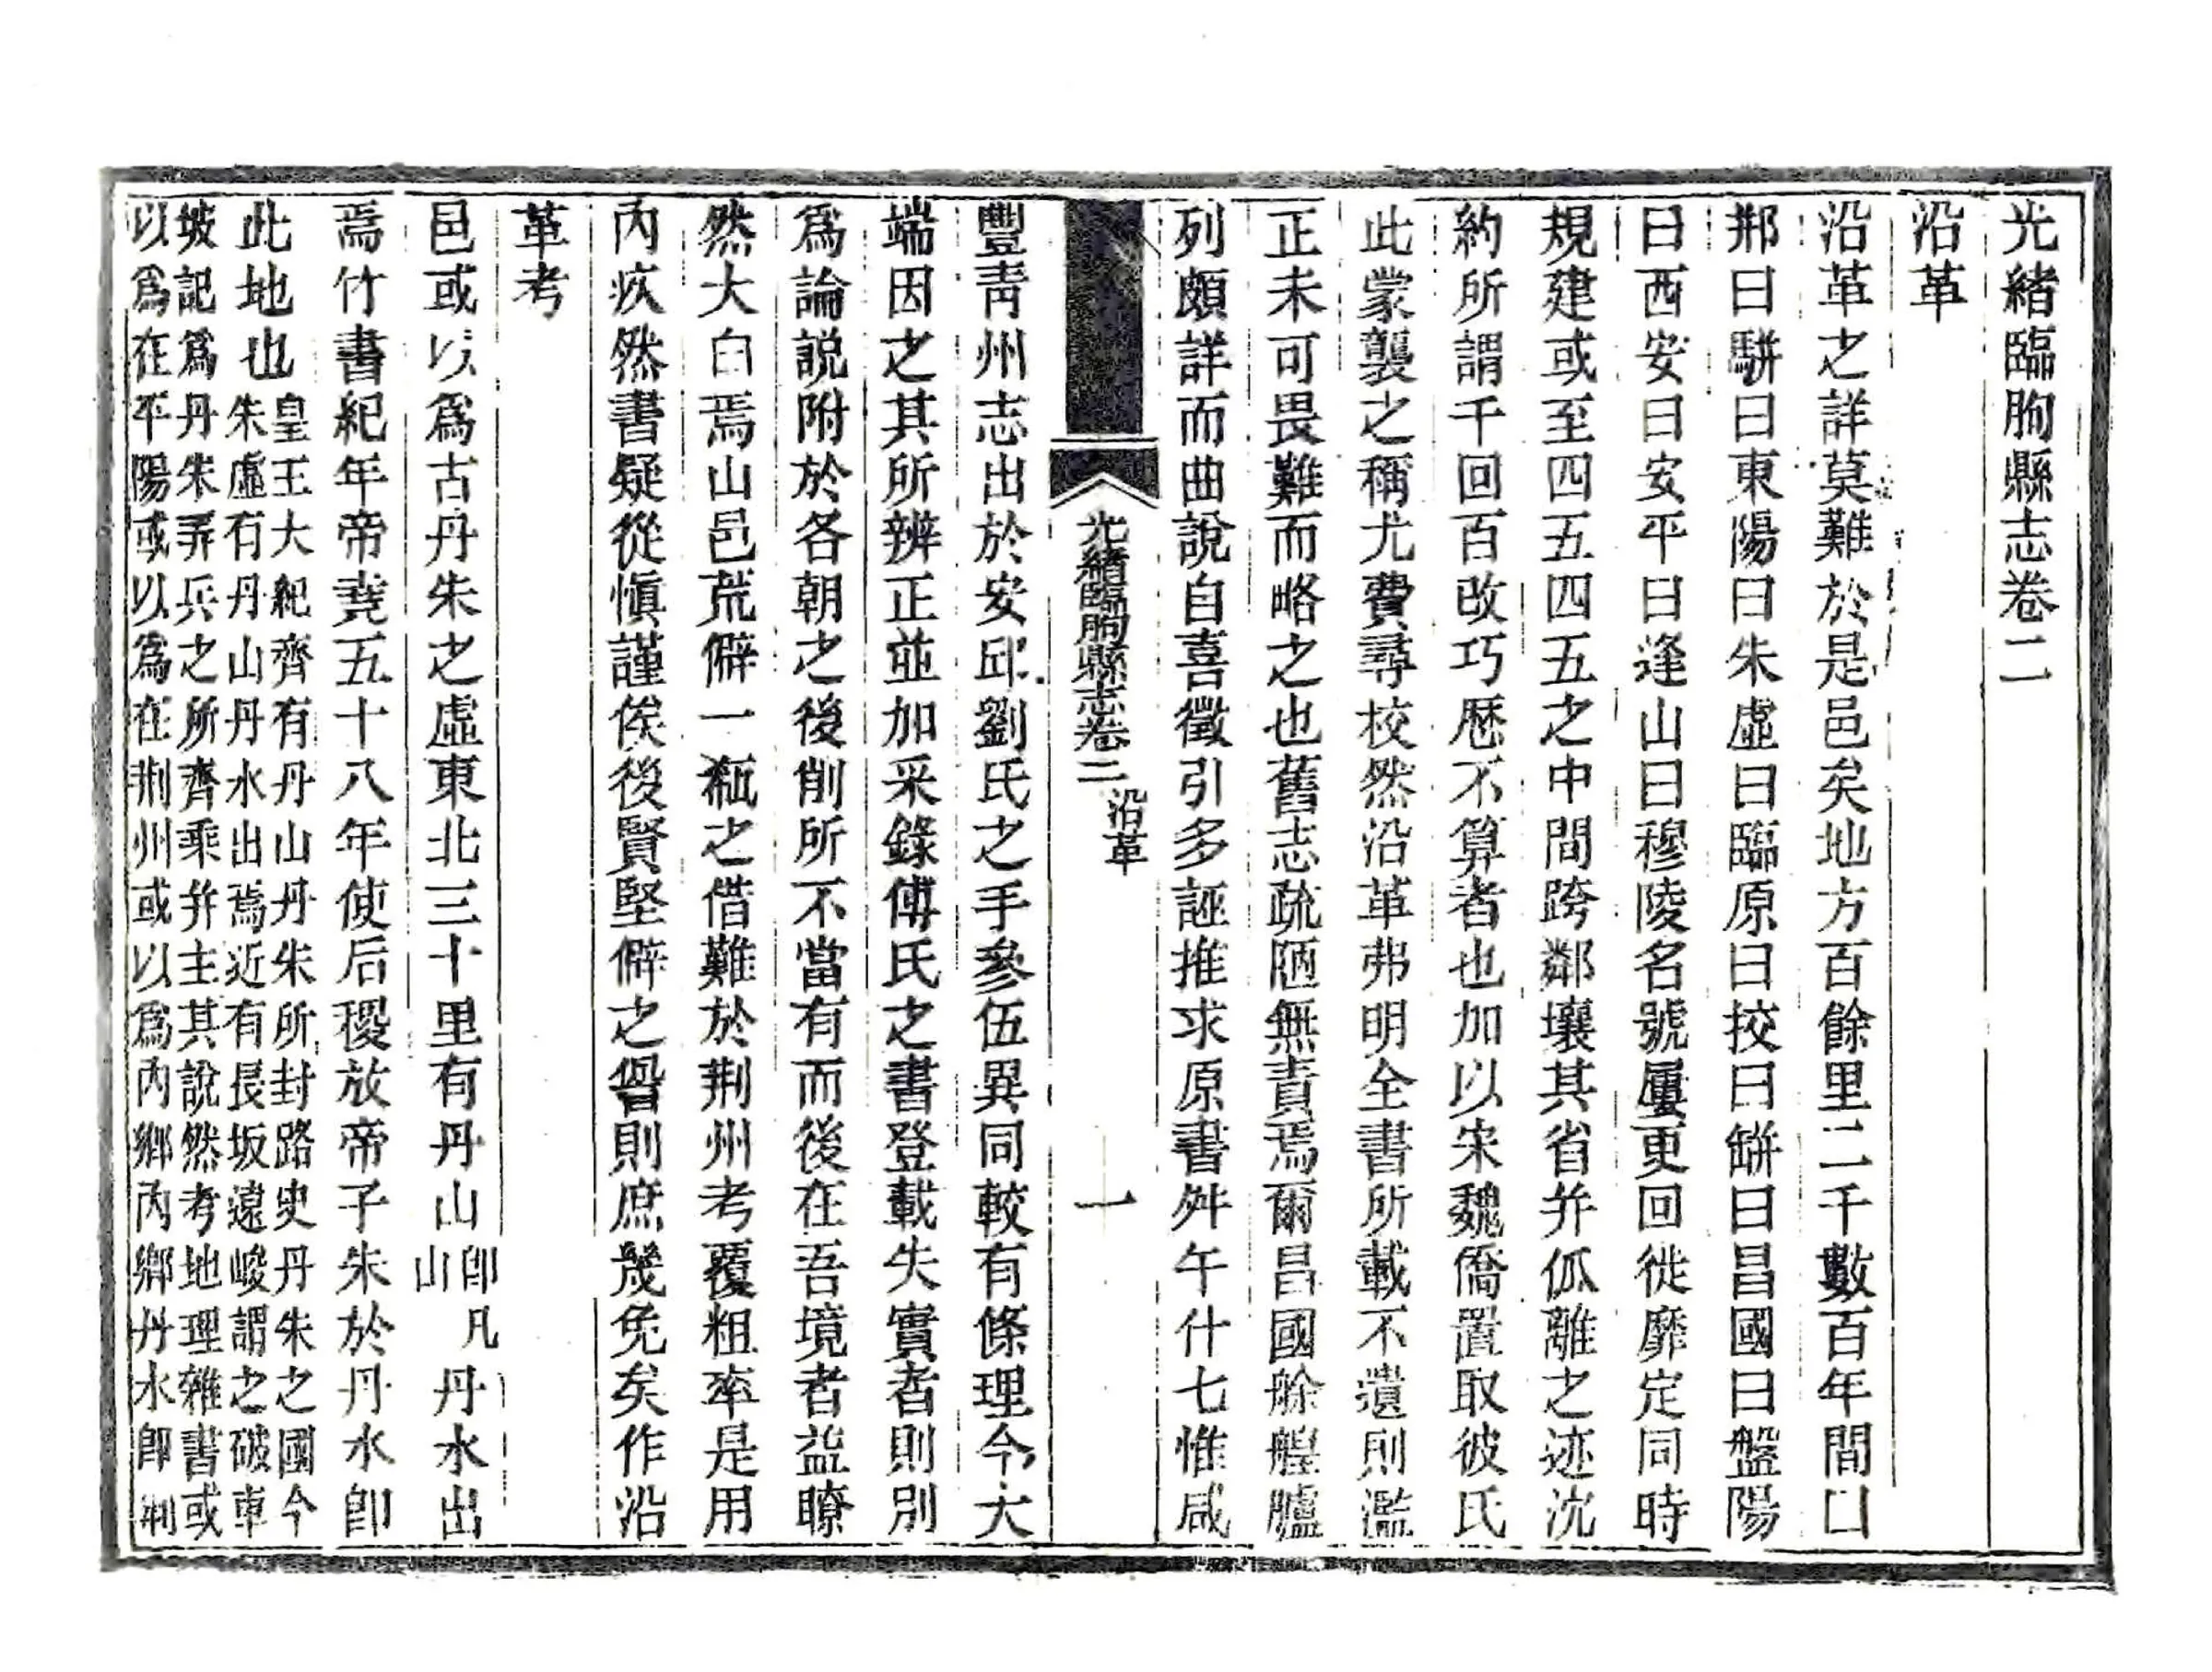 光緒臨朐縣志卷二
沿革
沿革之詳莫難於是邑矣地方百餘里二千數百年間曰
郱曰駢曰東陽曰朱虛曰臨原曰挍曰缾曰昌國曰盤陽
曰西安曰安平曰逢山曰穆陵名號屢更回徙靡定同時
規建或至四五四五之中間跨鄰壤其省并伱離之迹沈
約所謂千回百改巧厯不算者也加以宋魏僑置取彼氏
此蒙襲之稱尤費尋校然沿革弗明全書所載不遺則濫
正未可畏難而略之也舊志疏陋無責焉爾昌國艅艎臚
列頗詳而曲說自喜徵引多誣推求原書舛午什七惟咸
光緒臨朐縣志卷二 沿革 一
豐青州志出於安邱劉氏之手參伍異同較有條理今大
端因之其所辨正並加采錄傅氏之書登載失實者則別
爲論說附於各朝之後削所不當有而後在吾境者益瞭
然大白焉山邑荒僻一瓻之借難於荆州考覆粗率是用
內疚然書疑從愼謹俟後賢堅僻之誚則庶幾免矣作沿
革考
邑或以爲古丹朱之虛東北三十里有丹山卽凡山丹水出
焉竹書紀年帝堯五十八年使后稷放帝子朱於丹水卽
此地也皇王大紀齊有丹山丹朱所封路史丹朱之國今
朱虛有丹山丹水出焉近有長坂遠峻謂之破車
坡記爲丹朱弄兵之所齊乘并主其說然考地理雜書或
以爲在平陽或以爲在荆州或以爲內鄉內鄉丹水卽荆